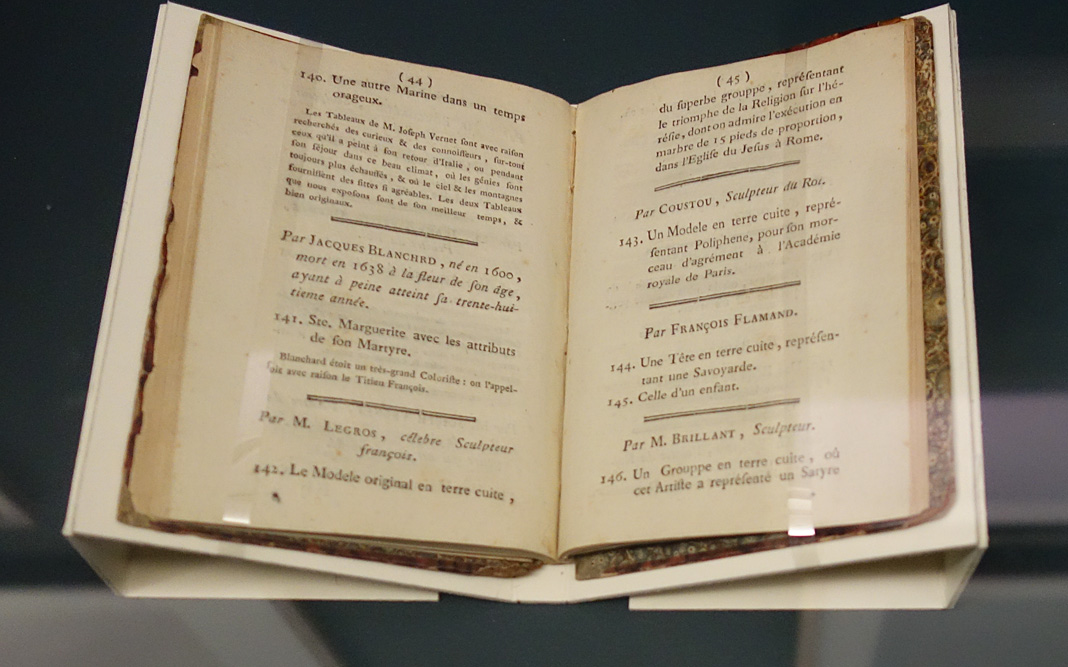 ( 44 )
140. Une autre Marine dans un temps
orageux.
Les Tableaux de M. Joſeph Vernet ſont avec raiſon
recherchés des curieux & des connoiſſeurs, ſur-tout
ceux qu'il a peint à ſon retour d'Italie, ou pendant
ſon ſéjour dans ce beau climat, où les génies ſont
toujours plus échauffés, & où le ciel & les montagnes
fourniſſent des ſittes ſi agréables. Les deux Tableaux
que nous expoſons ſont de ſon meilleur temps, &
bien originaux.
Par JACQUES BLANCHRD, né en 1600,
mort en 1638 à la fleur de ſon âge,
ayant à peine atteint ſa trente-hui-
tieme année.
141. Ste. Marguerite avec les attributs
de ſon Martyre.
Blanchard étoit un très-grand Coloriſte : on l'appel-
loit avec raiſon le Titien François.
Par M. LEGROS, célebre Sculpteur
françois.
142. Le Modele original en terre cuite,
( 45 )
du ſuperbe grouppe, repréſentant
le triomphe de la Religion ſur l'hé-
réſie, dont on admire l'exécution en
marbre de 15 pieds de proportion,
dans l'Egliſe du Jeſus à Rome.
Par COUSTOU, Sculpteur du Roi.
143. Un Modele en terre cuite, repré-
ſentant Poliphene, pour ſon mor-
ceau d'agrément à l'Académie
royale de Paris.
Par FRANÇOIS FLAMAND.
144. Une Tête en terre cuite, repréſen-
tant une Savoyarde.
145. Celle d'un enfant.
Par M. BRILLANT, Sculpteur.
146. Un Grouppe en terre cuite, où
cet Artiſte a repréſenté un Satyre